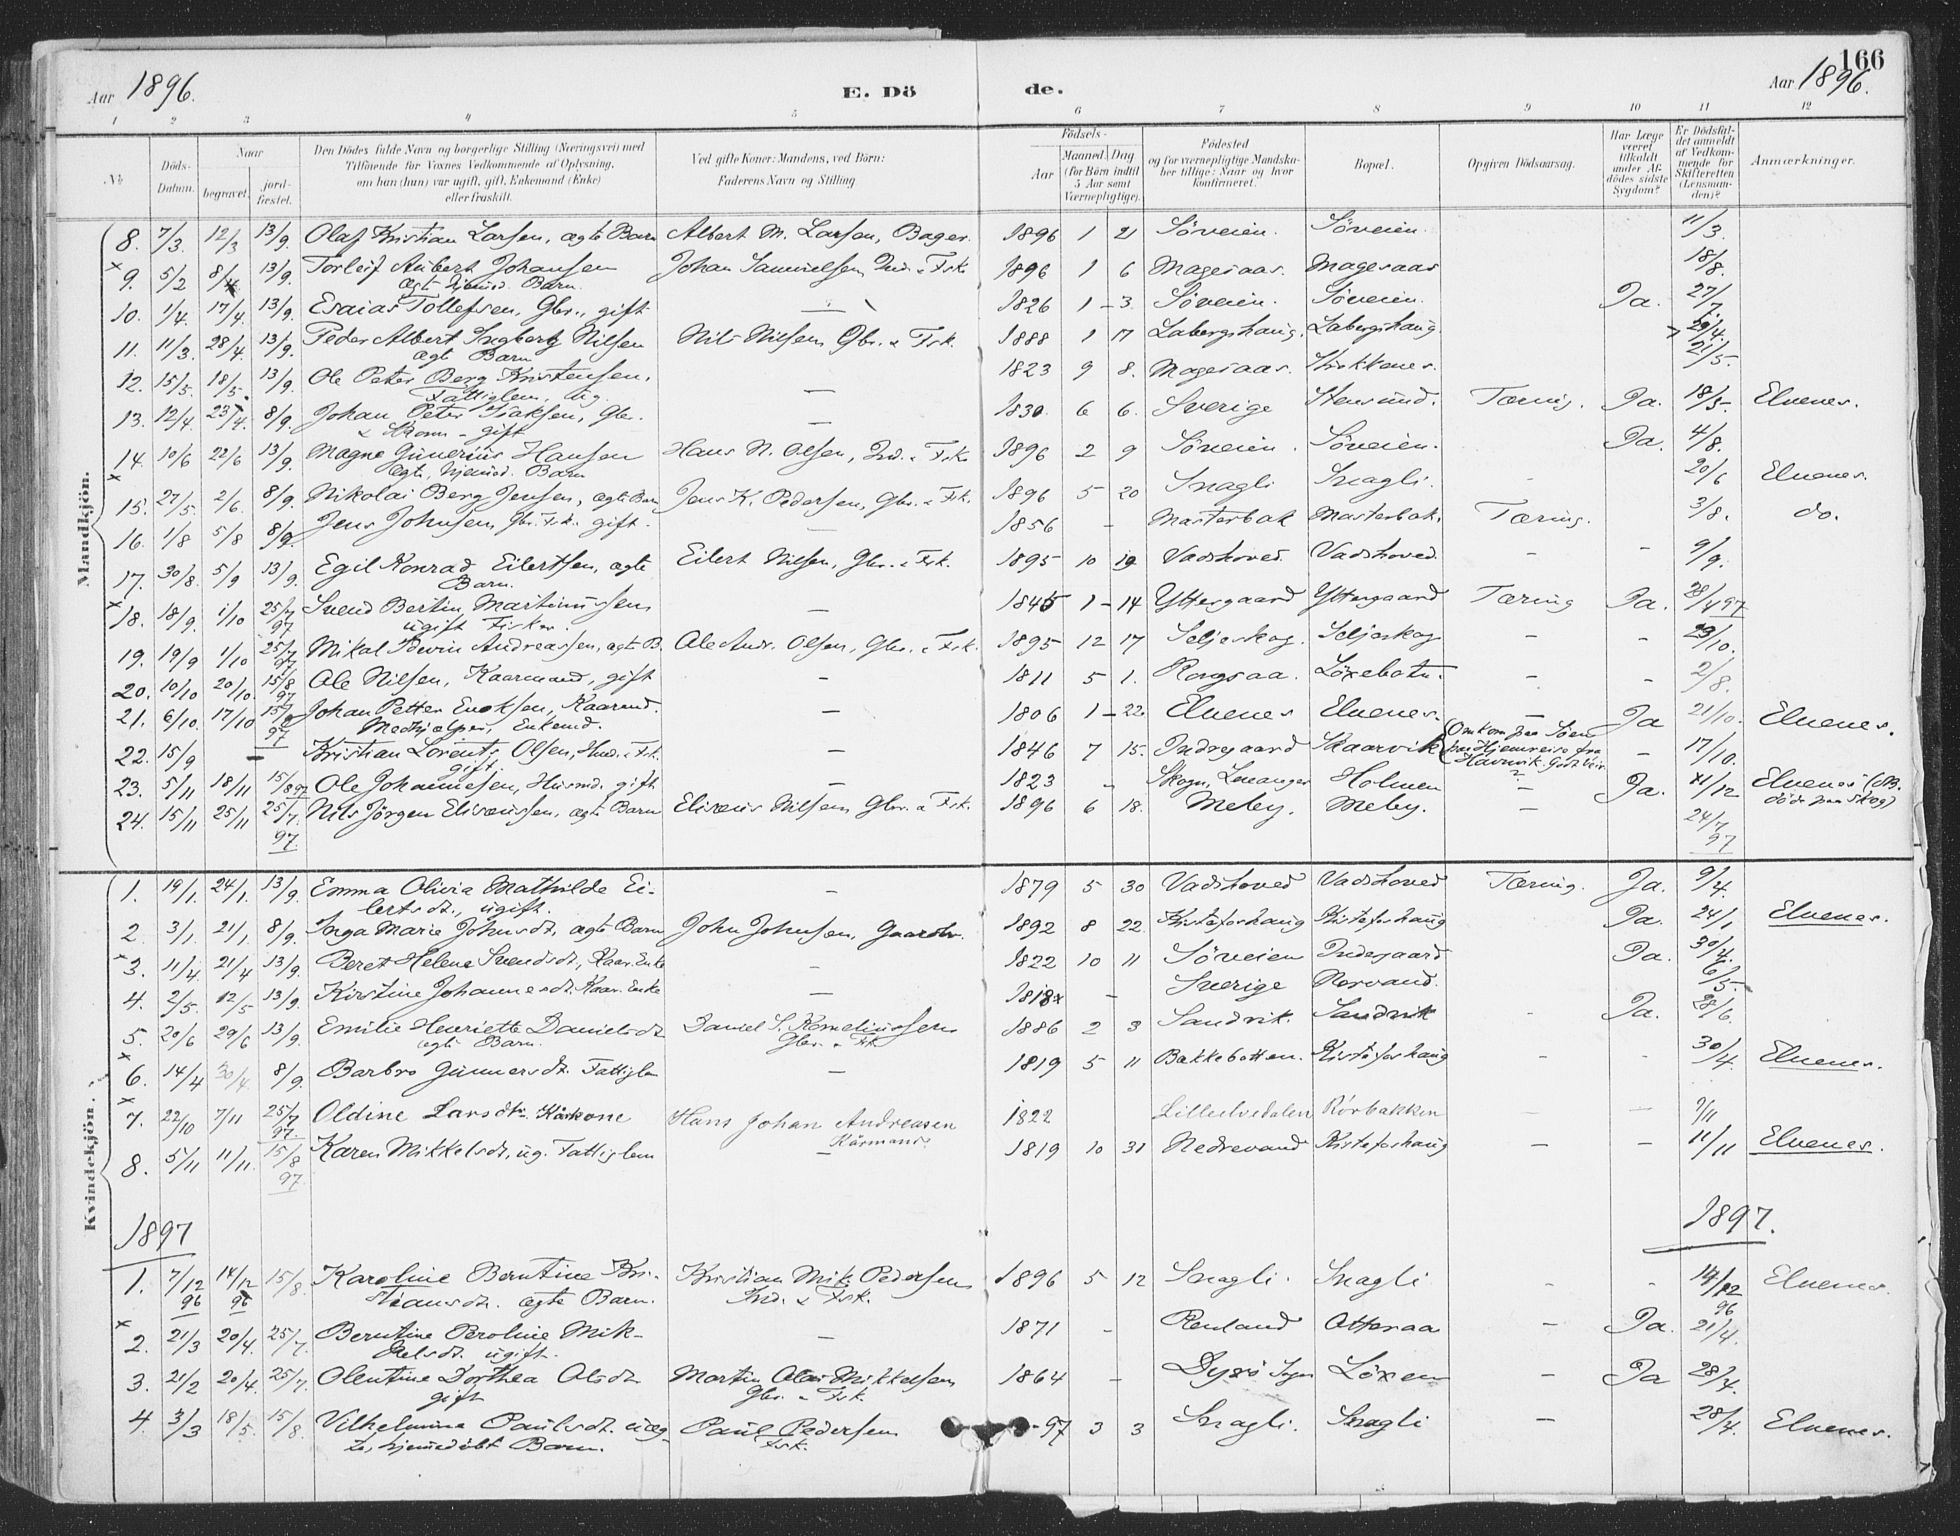 166
Aar 1896.
E. Dö
de.
Aar 1896.
1 2 3 4 5 6 7 8 9 10 11 12
No.
Döds-Datum.
Naar
begravet.
jordfæstet.
Den Dödes fulde Navn og borgerlige Stilling (Næringsvei) med
Tilföiende for Voxnes Vedkommende af Oplysning,
om han (hun) var ugift, gift, Enkemand (Enke)
eller fraskilt.
Ved gifte Koner: Mandens, ved Börn:
Faderens Navn og Stilling
Födsels-
Aar
Maaned. Dag
(for Börn indtil
5 Aar samt
Værnepligtige).
Födested
og for værnepligtige Mandskaber tillige: Naar og hvor
konfirmeret.
Bopæl.
Opgiven Dödsaarsag.
Har Læge
været
tilkaldt
under Afdödes sidste
Sygdom?
Er Dödsfaldet anmeldt
af Vedkommende for
Skifteretten
(Lensmanden)?
Anmærkninger.
Mandkjön.
8. 7/3 12/3 13/9 Olaf Kristian Larsen, ægte Barn Albert M. Larsen, Bager. 1896 1 21 Söveien. Söveien. 11/3.
x 9. 5/2 8/4 13/9. Torleif Aubert Johansen Johan Samuelsen, Ind. & Fsk. 1896 1 6 Magesaas. Magesaas 18/8.
ægte hjemmed. Barn.
10. 1/4. 17/4. 13/9. Esaias Tollefsen, Gbr., gift 1826 1 - 3. Söveien. Söveien. Ja. 27/7.
11. 11/3. 28/4. 13/9. Peder Albert Ingberg Nilsen Nils Nilsen, Gbr. & Fsk. 1888 1 17 Labergshaug. Labergshaug 29/4.
ægte Barn
12. 15/5. 18/5. 13/9. Ole Peter Berg Kristensen. — 1823 9 8. Magesaas. Stokkenes. 21/5.
Fattiglem, ug.
13. 12/4. 23/4. 8/9. Johan Peter Isaksen, Gbr. — 1830. 6 6. Sverige Stensund. Tæring. Ja. 18/5. Elvenes.
gift
14. 10/6 22/6 13/9. Magne Gunerius Hansen Hans N. Olsen, Ind. & Fsk. 1896 2 9 Söveien. Söveien. Ja. 4/8.
ægte, hjemmed. Barn
x 15. 27/5. 2/6. 8/9. Nikolai Berg Jensen, ægte Barn Jens K. Pedersen, Gbr. & Fsk. 1896 5 20 Snagli Snagli. - 20/6 Elvenes.
16. 1/8 5/8 8/9. Jens Johnsen, Gbr. Fsk. gift. — 1856 - Masterbak Masterbak. Tæring. 3/8. do.
17. 30/8. 5/9 13/9. Egil Konrad Eilertsen, ægte Eilert Nilsen, Gbr. & Fsk. 1895 10 19 Vadshoved Vadshoved - - 9/9.
Barn.
x 18. 18/9. 1/10 25/7 97 Svend Bertin Martinussen — 1845 1 - 14 Yttergaard Yttergaard Tæring Ja. 28/4 97
ugift Fisker.
19. 19/9 1/10 25/7 97 Mikal Edvin Andreassen, ægte B. Ole Andr. Olsen, Gbr. & Fsk. 1895 12 17 Seljeskog. Seljeskog - - 29/10.
20. 10/10 20/10. 15/8 97 Ole Nilsen, Kaarmand, gift - 1811 5 1. Rogsaa. Löxebotn. - - 2/8.
21. 6/10. 17/10 15/8 97 Johan Petter Enoksen, Kaarmd. — 1806 1 - 22. Elvenes Elvenes. — Ja 21/10. Elvenes.
Medhjælper, Enkemd.
22. 15/9 - Kristian Lorents Olsen, Husmd. & Fsk. — 1846 7 15. Indregaard Skaarvik Omkom paa Söen - 17/10.
gift. paa Hjemreise fra
Havnvik. Godt Veir.
23. 5/11 18/11 15/8 97 Ole Johannesen, Husmd. gift — 1823 - Skogn, Levanger Holmen - Ja. 11/12 Elvenes (NB.
döde paa Skog)
24. 15/11 25/11 25/7. 97. Nils Jörgen Elisæussen, ægte Barn Elisæus Nilsen Gbr. & Fsk. 1896 6 18. Meby. Meby. — 24/7 97
Kvindekjön.
1. 19/1. 24/1. 13/9. Emma Olivia Mathilde Ei- — 1879 5 30 Vadshoved Vadshoved Tæring. Ja. 9/4.
lertsdt., ugift.
2. 3/1. 21/1. 8/9. Inga Marie Johnsdt. ægte Barn John Johnsen, Gaardbr. 1892 8 22. Kristofershaug Kristofershaug Ja. 24/1 Elvenes.
x 3. 11/4. 21/4 13/9. Beret Helena Svendsdt., Kaar. Enke - 1822 10 11 Söveien Indregaard Ja. 30/4.
4. 2/5. 12/5 13/9. Kirstine Johannesdt. Kaar. Enke — 1818 - Sverige Rorvand. 6/5
5. 20/6 29/6 13/9. Emilie Henriette Danielsdt Daniel S. Korneliussen 1886 2 3 Sandvik. Sandvik Ja. 28/6.
ægte Barn. Gbr. & Fsk
x 6. 14/4 30/4. 8/9. Barbro Gunnersdt. Fattiglem — 1819 5 11 Bakkebotten. Kristofershaug - - 30/4. Elvenes.
x 7. 22/10 7/11 25/7 97. Oldine Larsdtr Kårkone Hans Johan Andreasen 1822 Lilleelvedalen Rörbakken - - 7/11
Kårmand.
8. 5/11 11/11. 15/8 97. Karen Mikkelsdt., ug. Fattiglem — 1819 10 31 Nedrevand Kristofershaug - - 11/11 Elvenes.
1897
1897.
1. 7/12 96 14/12 96 15/8. Karoline Berntine Kri- Kristian Mik. Pedersen 1896 5 12 Snagli. Snagli - - 14/12 96 Elvenes.
stiansdt. ægte Barn. Ind. & Fsk.
x 2. 21/3 20/4. 25/7. Berntine Peroline Mik- — 1871 - Renland Otteraa — Ja. 21/4.
kelsdt. ugift.
3. 21/2 20/4. 25/7. Olentine Dorthea Olsdt. Martin Olai Mikkelsen 1864 - Dyrö Sogn Löxen - Ja 28/4.
gift Gbr. & Fsk.
4. 3/3 18/5. 15/8. Vilhelmina Paulsdt. uæg- Paul Pedersen -97 3 3 Snagli. Snagli — 28/4. Elvenes.
te, hjemmedöbt Barn. Fsk.